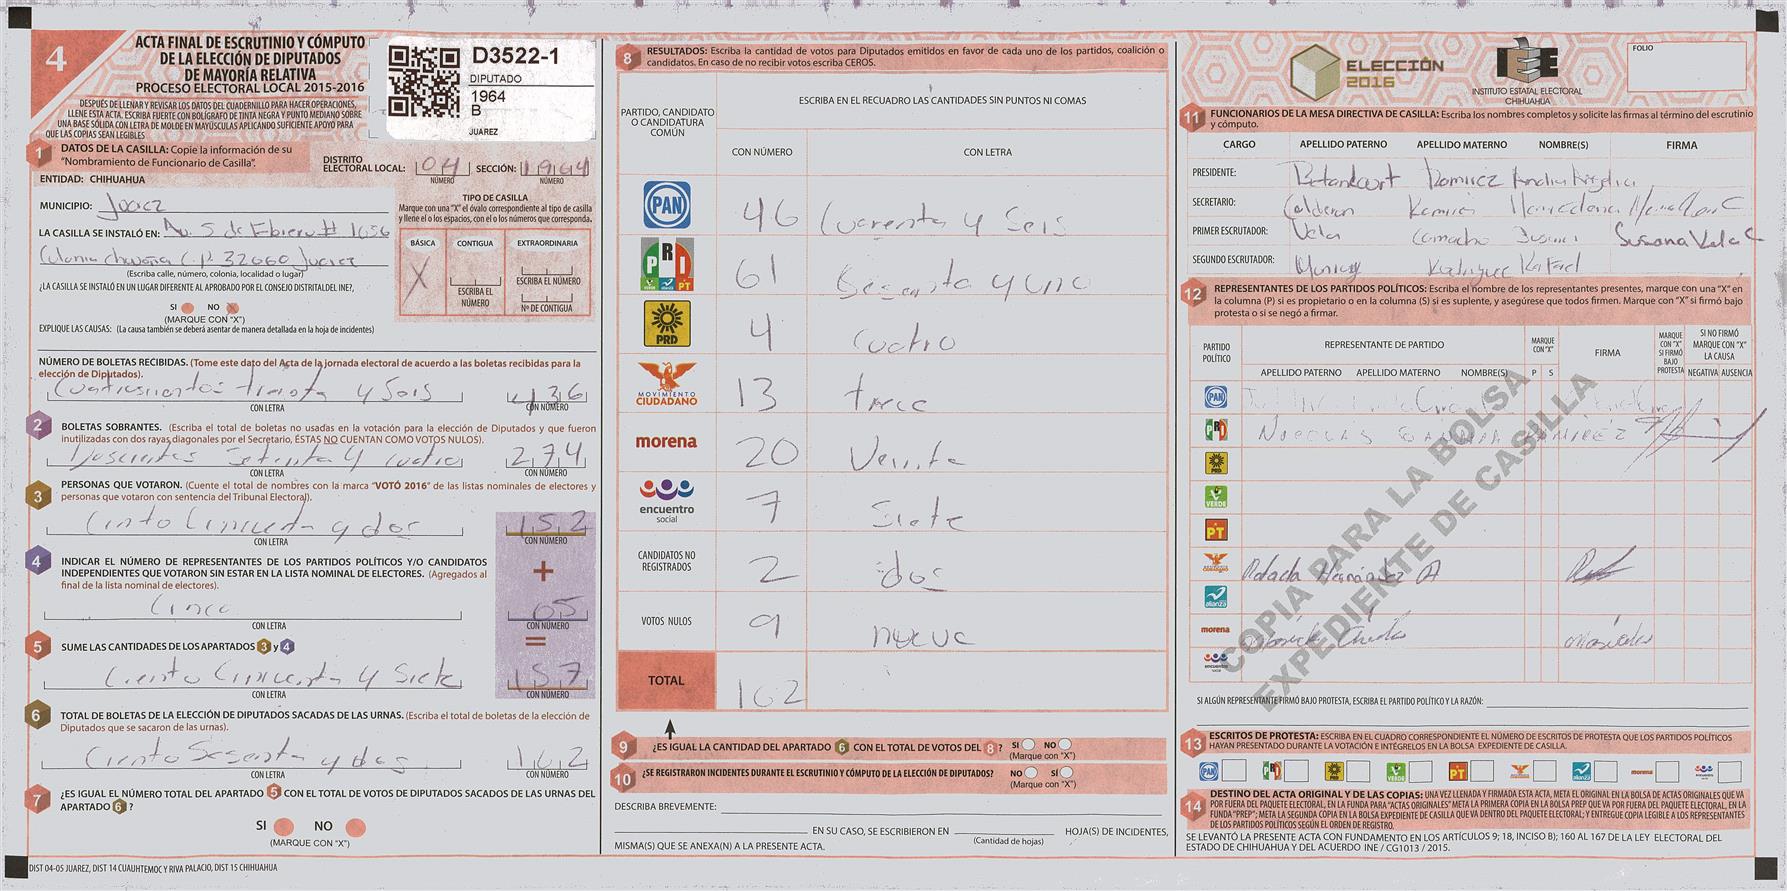 4
ACTA FINAL DE ESCRUTINIO Y CÓMPUTO
DE LA ELECCIÓN DE DIPUTADOS
DE MAYORÍA RELATIVA
PROCESO ELECTORAL LOCAL 2015-2016
DESPUÉS DE LLENAR Y REVISAR LOS DATOS DEL CUADERNILLO PARA HACER OPERACIONES,
LLENE ESTA ACTA. ESCRIBA FUERTE CON BOLÍGRAFO DE TINTA NEGRA Y PUNTO MEDIANO SOBRE
UNA BASE SÓLIDA CON LETRA DE MOLDE EN MAYÚSCULAS APLICANDO SUFICIENTE APOYO PARA
QUE LAS COPIAS SEAN LEGIBLES
D3522-1
DIPUTADO
1964
B
JUAREZ
1 DATOS DE LA CASILLA: Copie la información de su
"Nombramiento de Funcionario de Casilla".
DISTRITO
ELECTORAL LOCAL: 04 SECCIÓN: 1964
NÚMERO NÚMERO
ENTIDAD: CHIHUAHUA
MUNICIPIO: Juarez
LA CASILLA SE INSTALÓ EN: Av. 5 de Febrero # 1656
Colonia chaveña C.P. 32060 Juarez
(Escriba calle, número, colonia, localidad o lugar)
¿LA CASILLA SE INSTALÓ EN UN LUGAR DIFERENTE AL APROBADO POR EL CONSEJO DISTRITAL DEL INE?,
SI NO X
(MARQUE CON "X")
EXPLIQUE LAS CAUSAS: (La causa también se deberá asentar de manera detallada en la hoja de incidentes)
TIPO DE CASILLA
Marque con una "X" el óvalo correspondiente al tipo de casilla
y llene el o los espacios, con el o los números que corresponda.
BÁSICA CONTIGUA EXTRAORDINARIA
X
ESCRIBA EL NÚMERO
ESCRIBA EL NÚMERO
Nº DE CONTIGUA
NÚMERO DE BOLETAS RECIBIDAS. (Tome este dato del Acta de la jornada electoral de acuerdo a las boletas recibidas para la
elección de Diputados).
Cuatrocientos treinta y Seis 436
CON LETRA CON NÚMERO
2 BOLETAS SOBRANTES. (Escriba el total de boletas no usadas en la votación para la elección de Diputados y que fueron
inutilizadas con dos rayas diagonales por el Secretario, ÉSTAS NO CUENTAN COMO VOTOS NULOS).
Doscientos Setenta y cuatro 274
CON LETRA CON NÚMERO
3 PERSONAS QUE VOTARON. (Cuente el total de nombres con la marca "VOTÓ 2016" de las listas nominales de electores y
personas que votaron con sentencia del Tribunal Electoral).
Ciento Cincuenta y dos 152
CON LETRA CON NÚMERO
4 INDICAR EL NÚMERO DE REPRESENTANTES DE LOS PARTIDOS POLÍTICOS Y/O CANDIDATOS
INDEPENDIENTES QUE VOTARON SIN ESTAR EN LA LISTA NOMINAL DE ELECTORES. (Agregados al
final de la lista nominal de electores).
+
Cinco 05
CON LETRA CON NÚMERO
=
5 SUME LAS CANTIDADES DE LOS APARTADOS 3 y 4
Ciento Cincuenta y Siete 157
CON LETRA CON NÚMERO
6 TOTAL DE BOLETAS DE LA ELECCIÓN DE DIPUTADOS SACADAS DE LAS URNAS. (Escriba el total de boletas de la elección de
Diputados que se sacaron de las urnas).
Ciento Sesenta y dos 162
CON LETRA CON NÚMERO
7 ¿ES IGUAL EL NÚMERO TOTAL DEL APARTADO 5 CON EL TOTAL DE VOTOS DE DIPUTADOS SACADOS DE LAS URNAS DEL
APARTADO 6?
SI NO
(MARQUE CON "X")
DIST 04-05 JUAREZ, DIST 14 CUAUHTEMOC Y RIVA PALACIO, DIST 15 CHIHUAHUA
8 RESULTADOS: Escriba la cantidad de votos para Diputados emitidos en favor de cada uno de los partidos, coalición o
candidatos. En caso de no recibir votos escriba CEROS.
PARTIDO, CANDIDATO
O CANDIDATURA
COMÚN
ESCRIBA EN EL RECUADRO LAS CANTIDADES SIN PUNTOS NI COMAS
CON NÚMERO CON LETRA
PAN 46 Cuarenta y Seis
PRI VERDE alianza PT 61 Sesenta y uno
PRD 4 Cuatro
MOVIMIENTO CIUDADANO 13 trece
morena 20 Veinte
encuentro social 7 Siete
CANDIDATOS NO REGISTRADOS 2 dos
VOTOS NULOS 9 nueve
TOTAL 162
9 ¿ES IGUAL LA CANTIDAD DEL APARTADO 6 CON EL TOTAL DE VOTOS DEL 8? SI NO
(Marque con "X")
10 ¿SE REGISTRARON INCIDENTES DURANTE EL ESCRUTINIO Y CÓMPUTO DE LA ELECCIÓN DE DIPUTADOS? NO SÍ
(Marque con "X")
DESCRIBA BREVEMENTE:
EN SU CASO, SE ESCRIBIERON EN HOJA(S) DE INCIDENTES,
(Cantidad de hojas)
MISMA(S) QUE SE ANEXA(N) A LA PRESENTE ACTA.
ELECCIÓN
2016
IEE
INSTITUTO ESTATAL ELECTORAL
CHIHUAHUA
FOLIO
11 FUNCIONARIOS DE LA MESA DIRECTIVA DE CASILLA: Escriba los nombres completos y solicite las firmas al término del escrutinio
y cómputo.
CARGO APELLIDO PATERNO APELLIDO MATERNO NOMBRE(S) FIRMA
PRESIDENTE: Betancourt Ramirez
SECRETARIO: Calderon Ramirez
PRIMER ESCRUTADOR: Vela Camacho Susana Susana Vela C
SEGUNDO ESCRUTADOR: Rodriguez Rafael
12 REPRESENTANTES DE LOS PARTIDOS POLÍTICOS: Escriba el nombre de los representantes presentes, marque con una "X" en
la columna (P) si es propietario o en la columna (S) si es suplente, y asegúrese que todos firmen. Marque con "X" si firmó bajo
protesta o si se negó a firmar.
PARTIDO POLÍTICO
REPRESENTANTE DE PARTIDO
MARQUE CON "X"
FIRMA
MARQUE CON "X" SI FIRMÓ BAJO PROTESTA
SI NO FIRMÓ MARQUE CON "X" LA CAUSA
APELLIDO PATERNO APELLIDO MATERNO NOMBRE(S) P S NEGATIVA AUSENCIA
PAN
PRI NICOLAS RAMIREZ
PRD
VERDE
PT
Hernández A
alianza
morena
COPIA PARA LA BOLSA
EXPEDIENTE DE CASILLA
SI ALGÚN REPRESENTANTE FIRMÓ BAJO PROTESTA, ESCRIBA EL PARTIDO POLÍTICO Y LA RAZÓN:
13 ESCRITOS DE PROTESTA: ESCRIBA EN EL CUADRO CORRESPONDIENTE EL NÚMERO DE ESCRITOS DE PROTESTA QUE LOS PARTIDOS POLÍTICOS
HAYAN PRESENTADO DURANTE LA VOTACIÓN E INTÉGRELOS EN LA BOLSA EXPEDIENTE DE CASILLA.
PAN PRI PRD VERDE PT alianza morena
14 DESTINO DEL ACTA ORIGINAL Y DE LAS COPIAS: UNA VEZ LLENADA Y FIRMADA ESTA ACTA, META EL ORIGINAL EN LA BOLSA DE ACTAS ORIGINALES QUE VA
POR FUERA DEL PAQUETE ELECTORAL, EN LA FUNDA PARA "ACTAS ORIGINALES" META LA PRIMERA COPIA EN LA BOLSA PREP QUE VA POR FUERA DEL PAQUETE ELECTORAL, EN LA
FUNDA "PREP"; META LA SEGUNDA COPIA EN LA BOLSA EXPEDIENTE DE CASILLA QUE VA DENTRO DEL PAQUETE ELECTORAL; Y ENTREGUE COPIA LEGIBLE A LOS REPRESENTANTES
DE LOS PARTIDOS POLÍTICOS SEGÚN EL ORDEN DE REGISTRO.
SE LEVANTÓ LA PRESENTE ACTA CON FUNDAMENTO EN LOS ARTÍCULOS 9; 18, INCISO B); 160 AL 167 DE LA LEY ELECTORAL DEL
ESTADO DE CHIHUAHUA Y DEL ACUERDO INE / CG1013 / 2015.